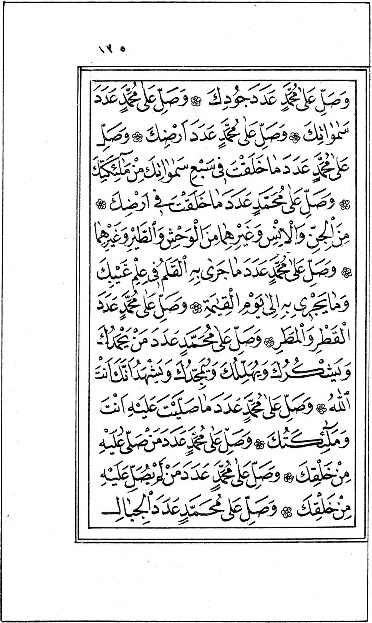 ١٢٥
وَصَلِّ عَلٰى مُحَمَّدٍ عَدَدَ جُودِكَ ۞ وَصَلِّ عَلٰى مُحَمَّدٍ عَدَدَ
سَمٰوَاتِكَ ۞ وَصَلِّ عَلٰى مُحَمَّدٍ عَدَدَ اَرْضِكَ ۞ وَصَلِّ
عَلٰى مُحَمَّدٍ عَدَدَ مَا خَلَقْتَ فِى سَبْعِ سَمٰوَاتِكَ مِنْ مَلٰٓئِكَتِكَ
۞ وَصَلِّ عَلٰى مُحَمَّدٍ عَدَدَ مَا خَلَقْتَ فِى اَرْضِكَ ۞
مِنَ الْجِنِّ وَالْاِنْسِ وَغَيْرِهِمَا مِنَ الْوَحْشِ وَالطَّيْرِ وَغَيْرِهِمَا
۞ وَصَلِّ عَلٰى مُحَمَّدٍ عَدَدَ مَا جَرٰى بِهِ الْقَلَمُ فِى عِلْمِ غَيْبِكَ
وَمَا يَجْرِى بِهِ اِلٰى يَوْمِ الْقِيٰمَةِ ۞ وَصَلِّ عَلٰى مُحَمَّدٍ عَدَدَ
الْقَطْرِ وَالْمَطَرِ ۞ وَصَلِّ عَلٰى مُحَمَّدٍ عَدَدَ مَنْ يَحْمَدُكَ
وَيَشْكُرُكَ وَيُهَلِّلُكَ وَيُمَجِّدُكَ وَيَشْهَدُ اَنَّكَ اَنْتَ
اللّٰهُ ۞ وَصَلِّ عَلٰى مُحَمَّدٍ عَدَدَ مَا صَلَّيْتَ عَلَيْهِ اَنْتَ
وَمَلٰٓئِكَتُكَ ۞ وَصَلِّ عَلٰى مُحَمَّدٍ عَدَدَ مَنْ صَلّٰى عَلَيْهِ
مِنْ خَلْقِكَ ۞ وَصَلِّ عَلٰى مُحَمَّدٍ عَدَدَ مَنْ لَمْ يُصَلِّ عَلَيْهِ
مِنْ خَلْقِكَ ۞ وَصَلِّ عَلٰى مُحَمَّدٍ عَدَدَ الْجِبَالِ